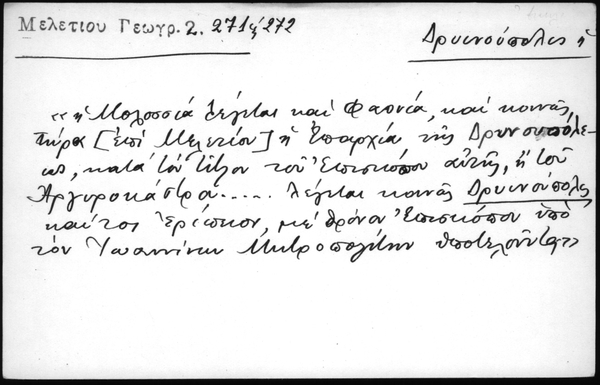 Μελετίου Γεωγρ. 2. 271 ἤ 272
Δρυϊνούπολις ἡ
«ἡ Μολοσσία λέγεται καί Φαονία, καί κοινῶς,
τώρα [ἐπί Μελετίου] ἡ Ἐπαρχία τῆς Δρυνουπόλε-
ως, κατά τόν τίτλον τοῦ Ἐπισκόπου αὐτῆς, ἤ τοῦ
Ἀργυροκάστρου..... λέγεται κοινῶς Δρυινούπολις
καί τος Ἐρείπιον, μέ θρόνον Ἐπισκόπου ὑπό
τόν Ἰωαννίνων Μητροπολίτην ὑποτελοῦντα»